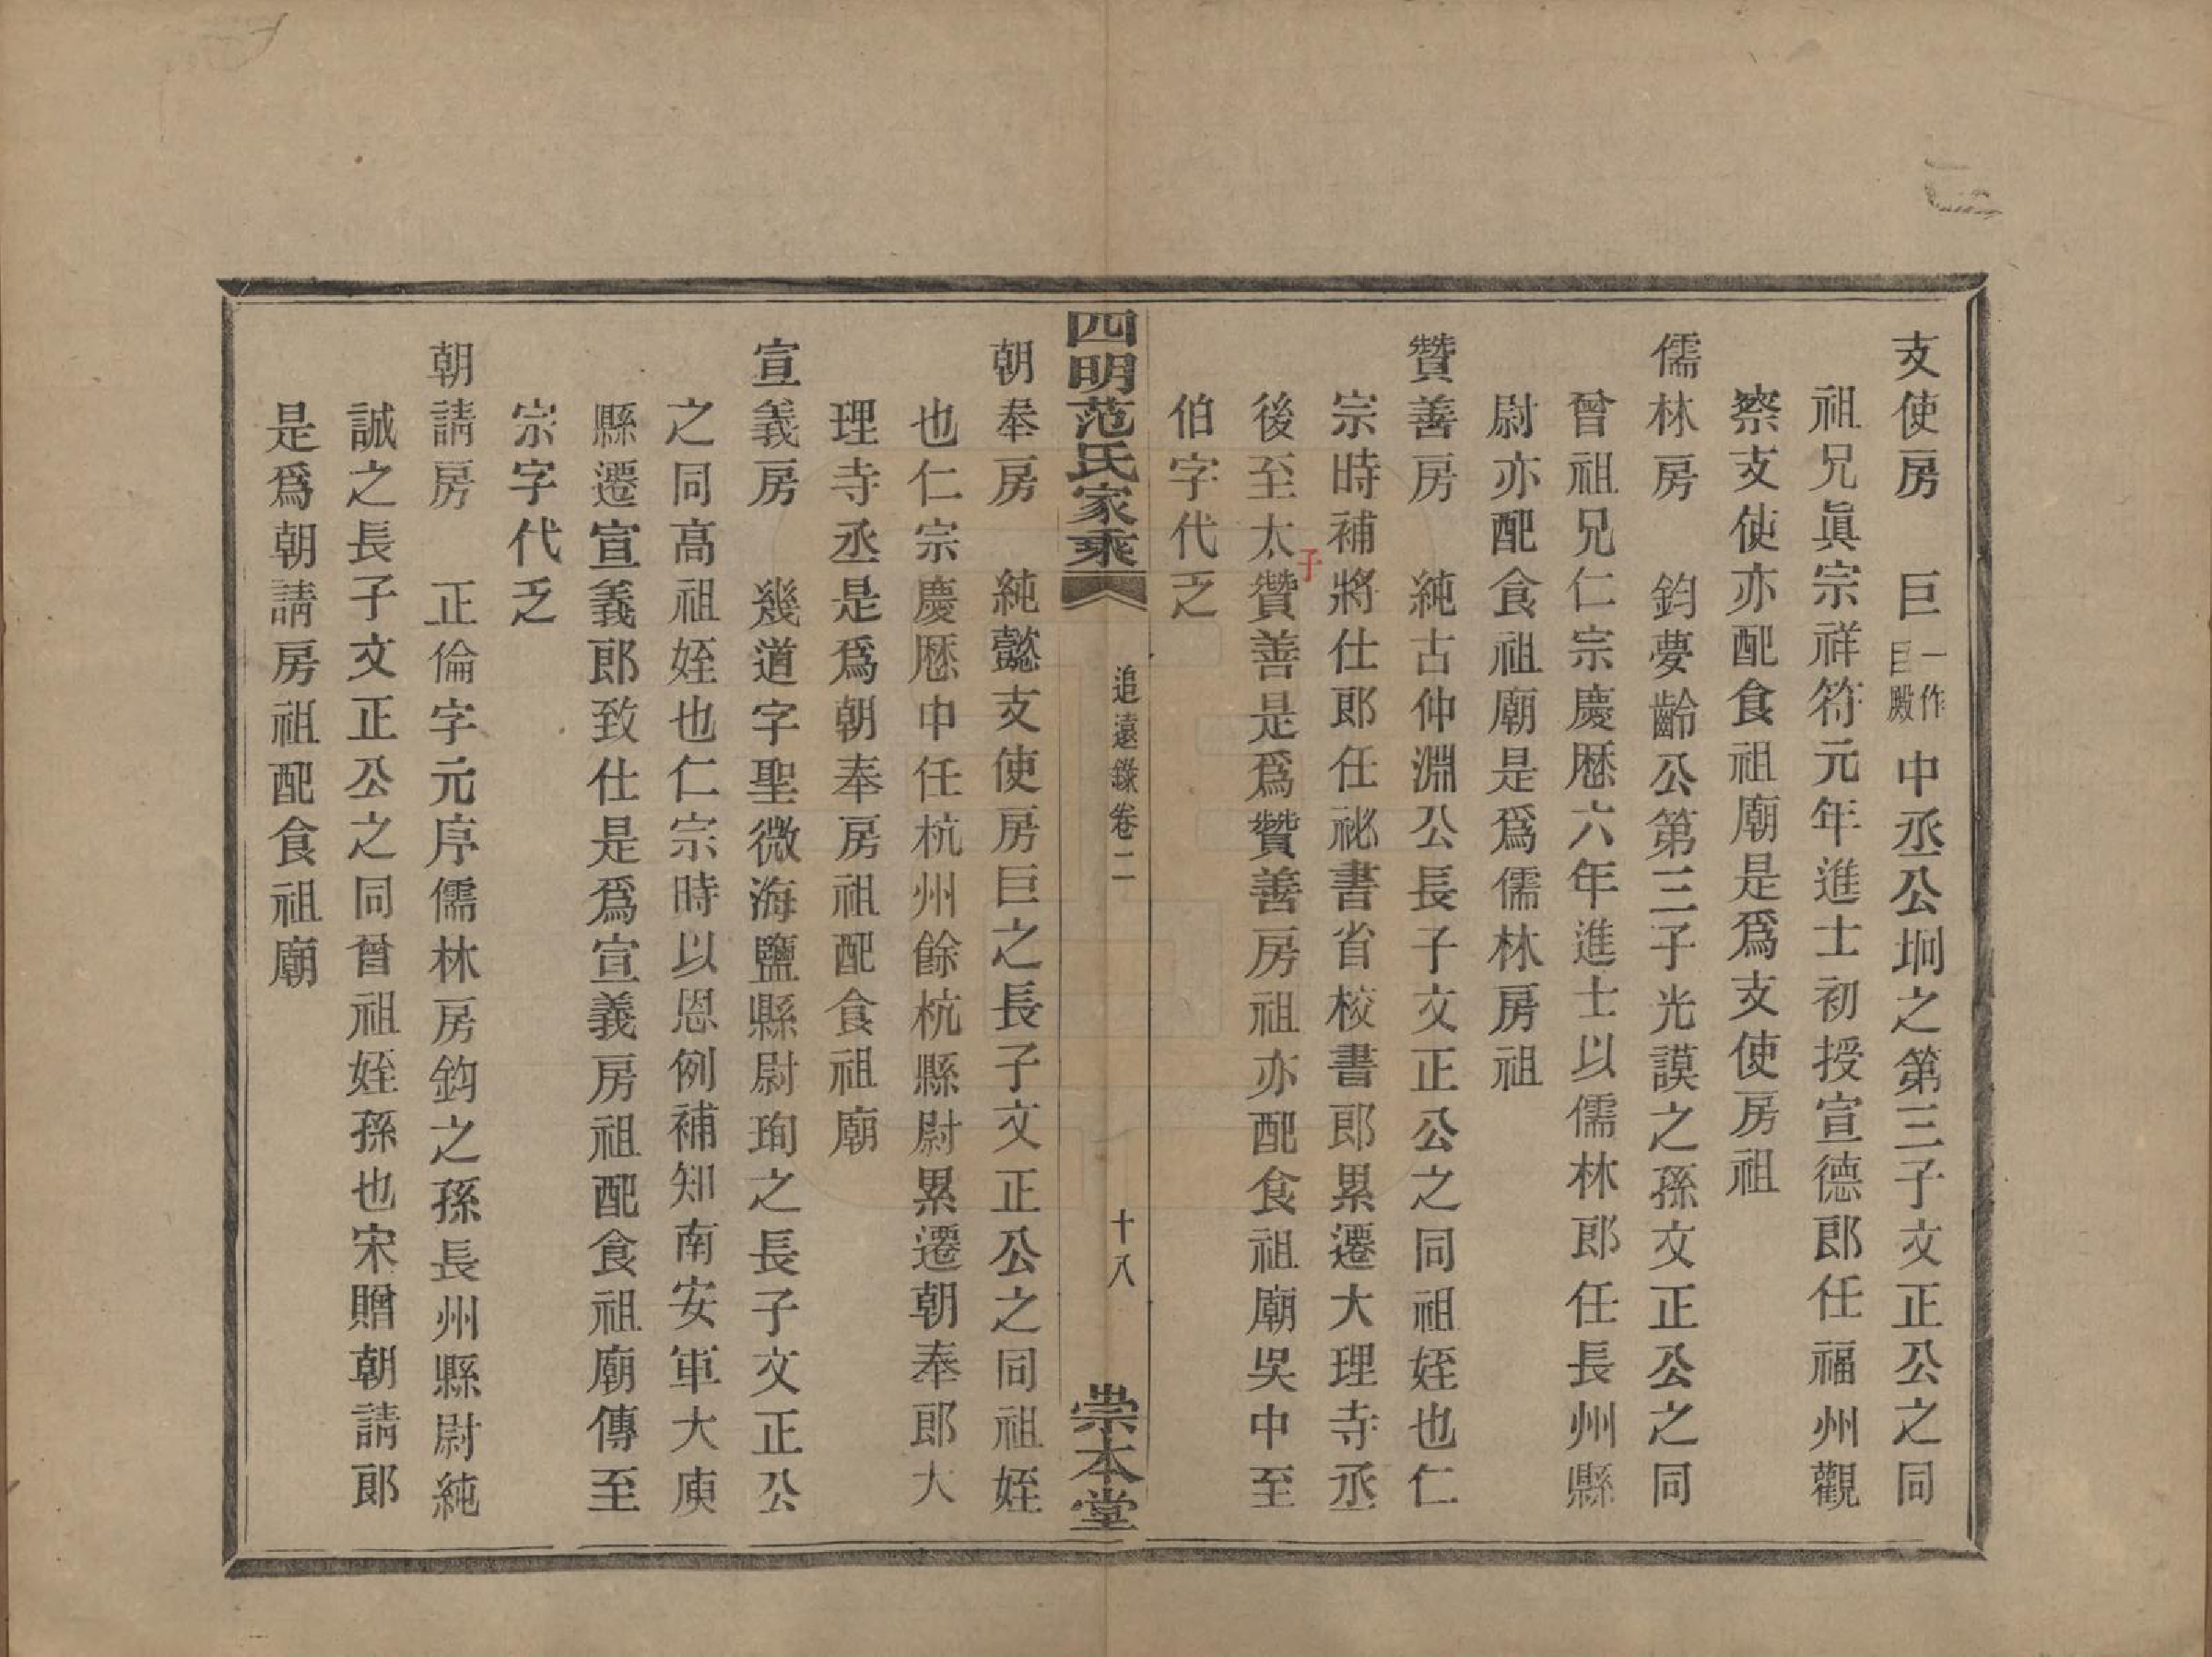 支使房　巨一作巨殿中丞公坰之第三子文正公之同
祖兄眞宗祥符元年進士初授宣德郎任福州觀
察支使亦配食祖廟是爲支使房祖
儒林房　鈞夢齡公第三子光謨之孫文正公之同
曾祖兄仁宗慶厯六年進士以儒林郎任長州縣
尉亦配食祖廟是爲儒林房祖
贊善房　純古仲淵公長子文正公之同祖姪也仁
宗時補將仕郎任祕書省校書郎累遷大理寺丞
後至太子贊善是爲贊善房祖亦配食祖廟吳中至
伯字代乏
四明范氏家乘
追遠錄卷二
十八
崇本堂
朝奉房　純懿支使房巨之長子文正公之同祖姪
也仁宗慶厯中任杭州餘杭縣尉累遷朝奉郎大
理寺丞是爲朝奉房祖配食祖廟
宣義房　幾道字聖微海鹽縣尉珣之長子文正公
之同高祖姪也仁宗時以恩例補知南安軍大庾
縣遷宣義郎致仕是爲宣義房祖配食祖廟傳至
宗字代乏
朝請房　正倫字元序儒林房鈞之孫長州縣尉純
誠之長子文正公之同曾祖姪孫也宋贈朝請郎
是爲朝請房祖配食祖廟